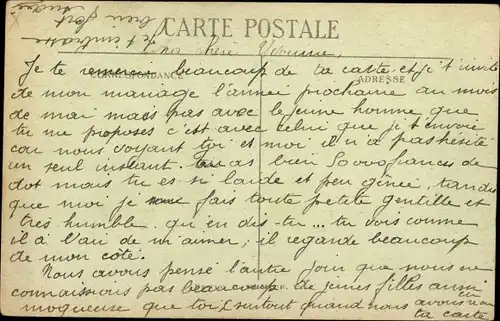 CARTE POSTALE
CORRESPONDANCE
ADRESSE
Ma chère Yvonne,
Je te remercie beaucoup de ta carte et je t'invite
de mon mariage l'année prochaine au mois
de mai mais pas avec le jeune homme que
tu me proposes c'est avec celui que je t'envoie
car nous voyant toi et moi il n'a pas hésité
un seul instant. Tu as bien 50000 francs de
dot mais tu es si laide et peu gênée, tandis
que moi je fais toute petite gentille et
très humble, qu'en dis-tu... tu vois comme
il à l'air de m'aimer; il regarde beaucoup
de mon côté.
Nous avons pensé l'autre jour que nous ne
connaissions pas beaucoup de jeunes filles aussi
moqueuse que toi, surtout quand nous avons vu
ta carte
Je t'embrasse
bien fort